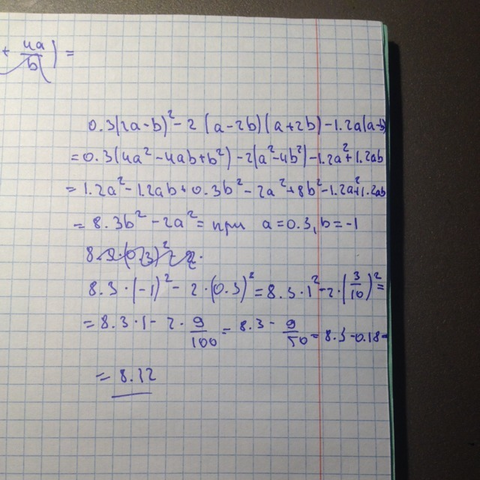 + 4a/b) =
0.3(2a-b)² - 2(a-2b)(a+2b) - 1.2a(a-b)
= 0.3(4a² - 4ab + b²) - 2(a² - 4b²) - 1.2a² + 1.2ab
= 1.2a² - 1.2ab + 0.3b² - 2a² + 8b² - 1.2a² + 1.2ab
= 8.3b² - 2a² = при a = 0.3, b = -1
8.3·(-1)² - 2·(0.3)² = 8.3·1² - 2·(3/10)² =
= 8.3·1 - 2·9/100 = 8.3 - 9/50 = 8.3 - 0.18 =
= 8.12